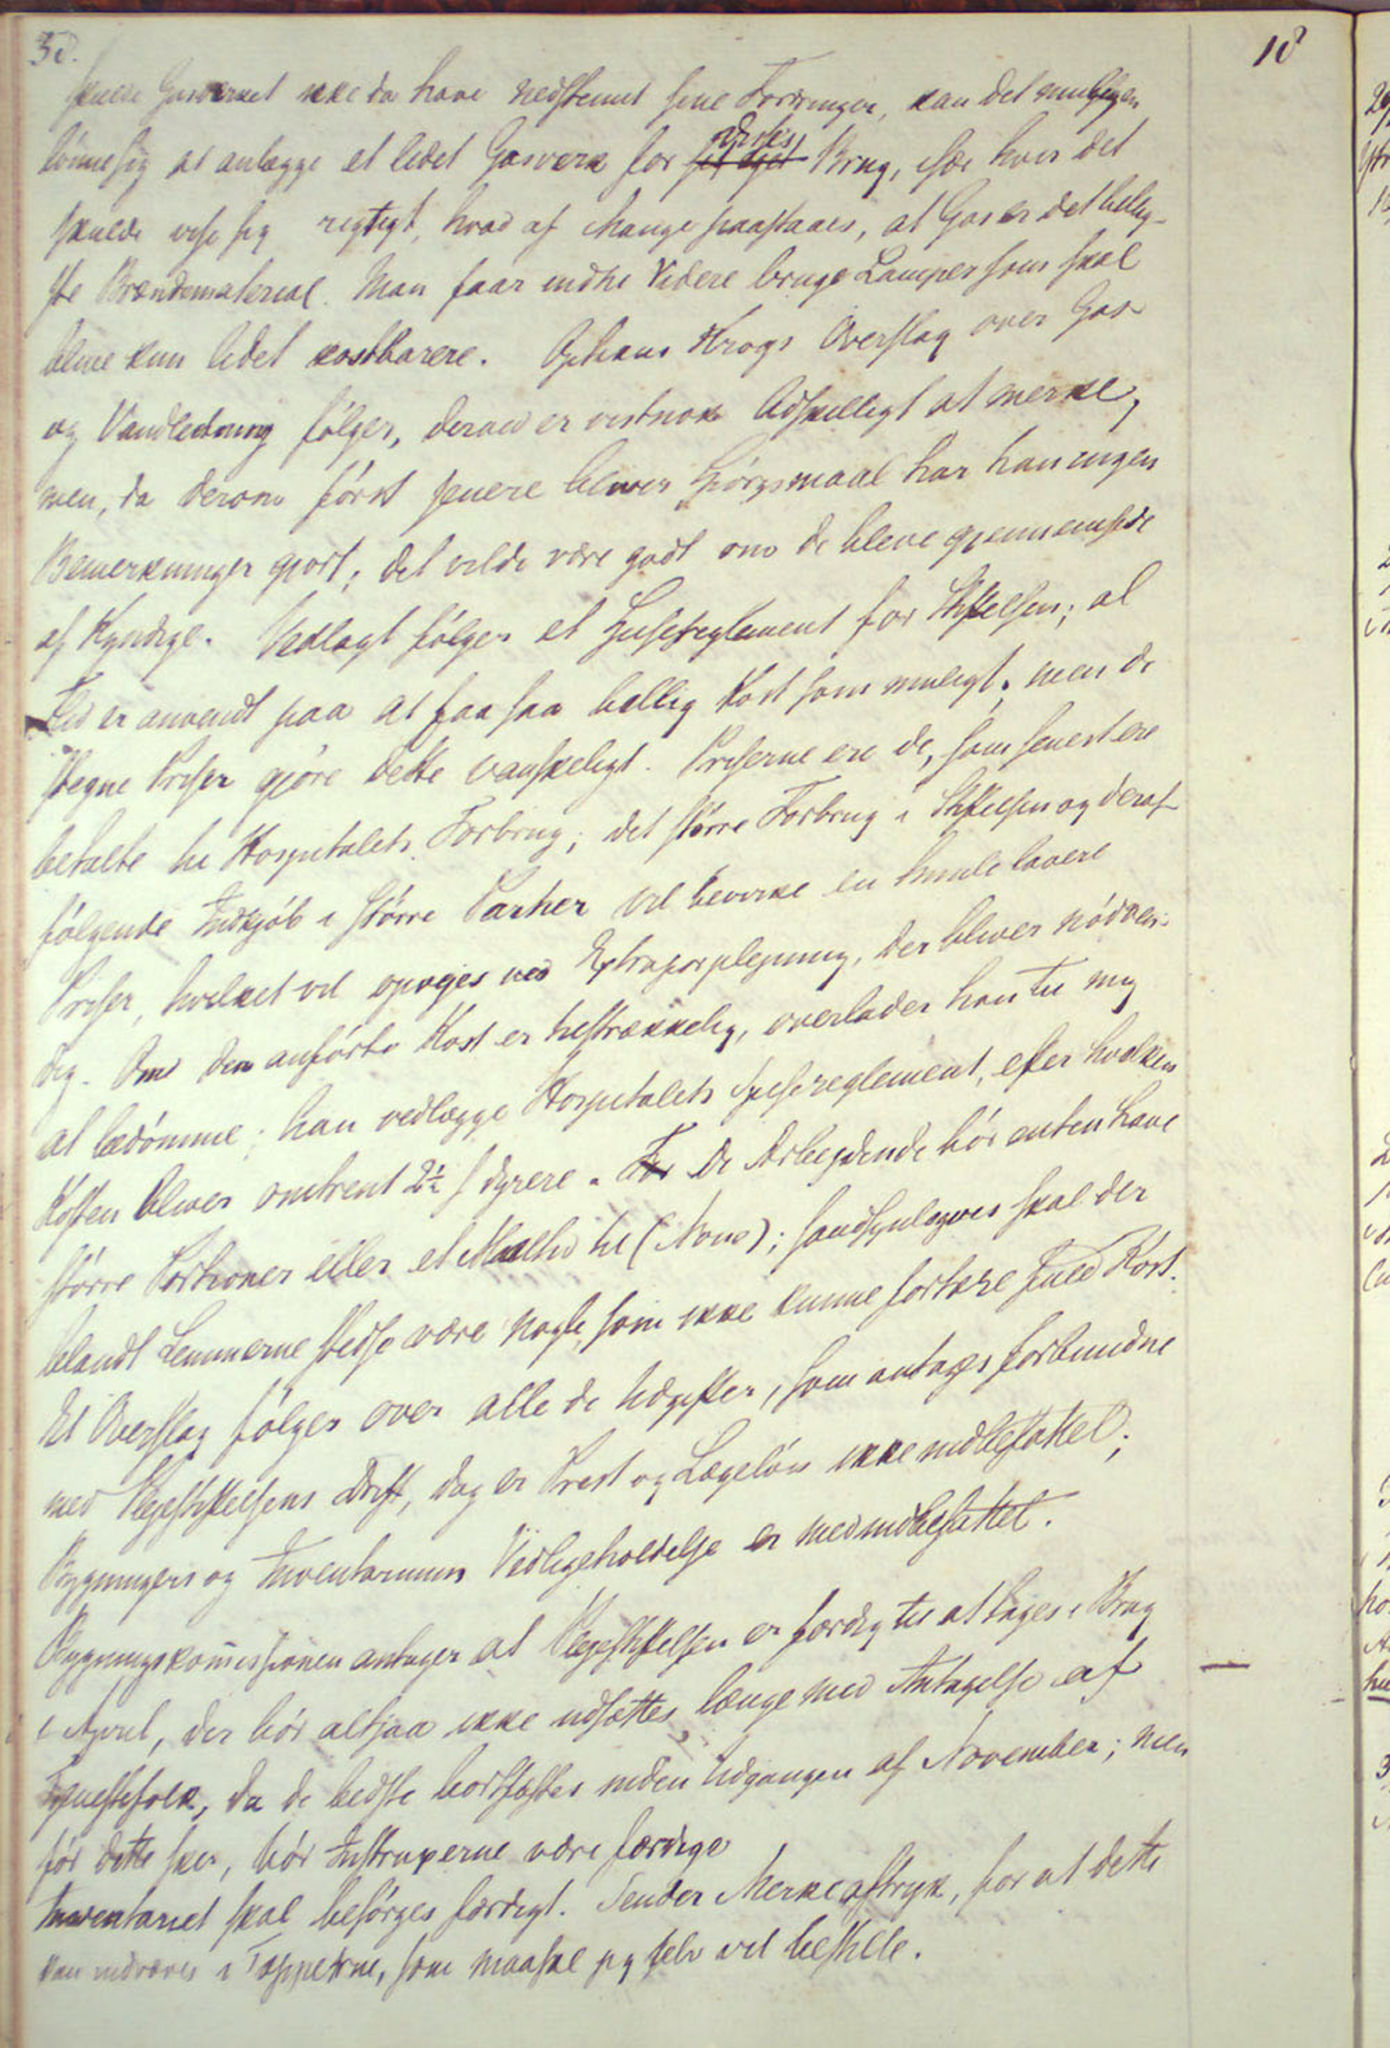 38.
skulde Gasverket ikke da have nedstemt sine Fordringer, kan det muligen
lönne sig at anlægge et lidet Gasverk for Brug, især hvis det
skulde vise sig rigtigt, hvad af Mange paastaaes, at Gas er det billig-
ste Brændemateriel. Man faar indtil Videre bruge Lamper som skal
blive kun lidet kostbarere. Krogs Overslag over Gas
og Vandledning fölger, derved er vistnok Adskilligt at merke,
men, da derom först senere bliver Spörgsmaal har han ingen
Bemerkninger gjort; det vilde være godt om de bleve gjennemseede
af Kyndige. Vedlagt fölger et Spisereglement for Stiftelsen; al
Flid er anvendt paa at faa saa billig Kost som muligt, men de
stegne Priser gjöre dette vanskeligt. Priserne ere de, som senest ere
betalte til Hospitalets Forbrug; det större Forbrug i Stiftelsen og deraf
fölgende Indkjöb i större Partier vil bevirke en Smule lavere
Priser, hvilket vil opvejes ved Extraforplejning, der bliver nödven-
dig. Om den anförte Kost er tilstrækkelig, overlader han til mig
at bedömme; han vedlægge Hospitalets Spisereglement, efter hvilken
Kosten bliver omtrent 2½ s dyrere. De Arbejdende bör enten have
större Portioner eller et Maaltid til (Non); sandsynligvis skal der
blandt Lemmerne stedse være nogle, som ikke kunne fortære fuld Kost.
Et Overslag fölger over alle de Udgifter, som antages forbundne
med Plejestiftelsens Drift, dog er Prest og Lægelön ikke indbefattet;
Bygningers og Inventariums Vedligeholdelse er med indbefattet.
Bygningskomissionen antager at Plejestiftelsen er færdig til at tages i Brug
i April, der bör altsaa ikke udsættes længe med Antagelse af
Tjenestefolk, da de bedste bortfæstes inden Udgangen af November; men
för dette sker, bör Instruxerne være færdige
Inventariet skal besörges færdigt. Sender Merkeaftryk, for at dette
kan indvæves i Tæpperne, som maaske jeg selv vil bestille.
18